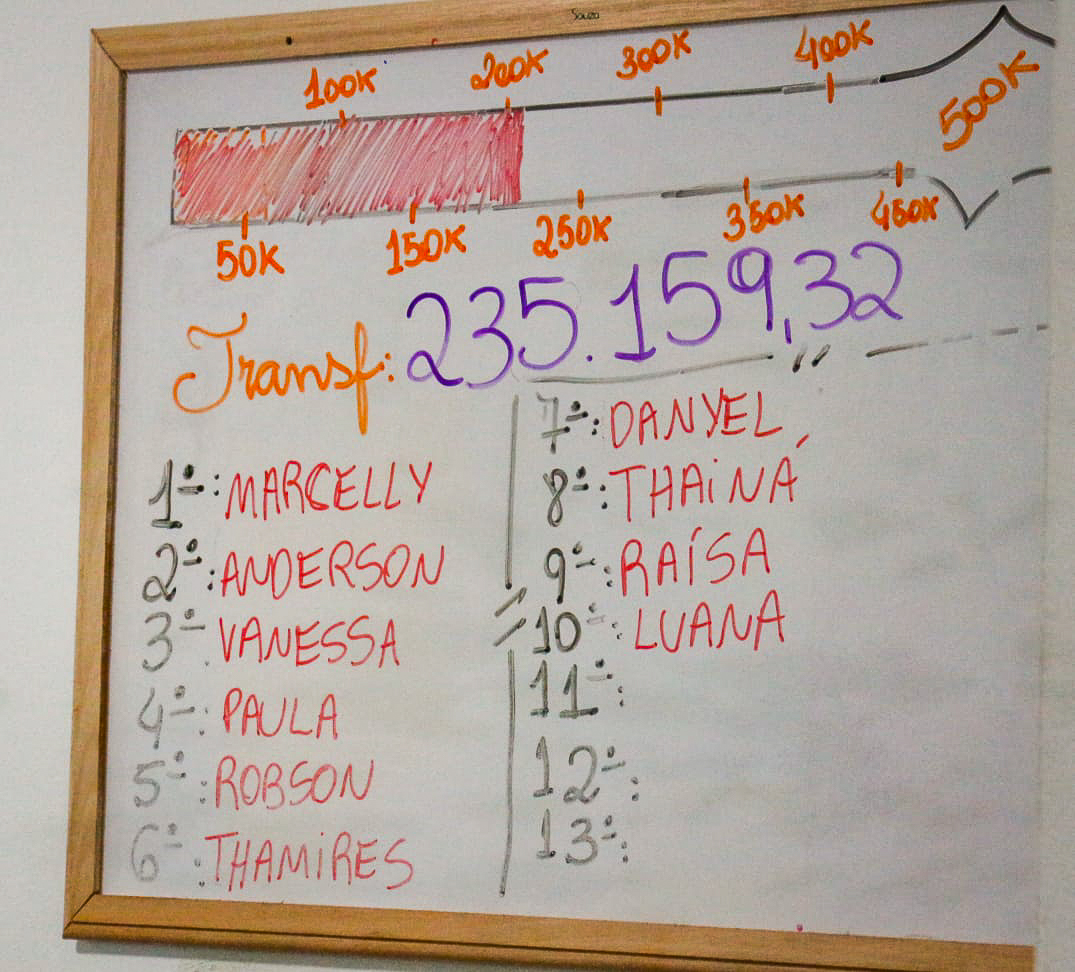 Souza
100K 200K 300K 400K
500K
50K 150K 250K 350K 450K
Transf: 235.159,32
1º: MARCELLY
2º: ANDERSON
3º: VANESSA
4º: PAULA
5º: ROBSON
6º: THAMIRES
7º: DANYEL
8º: THAINÁ
9º: RAÍSA
10º: LUANA
11º:
12º:
13º: